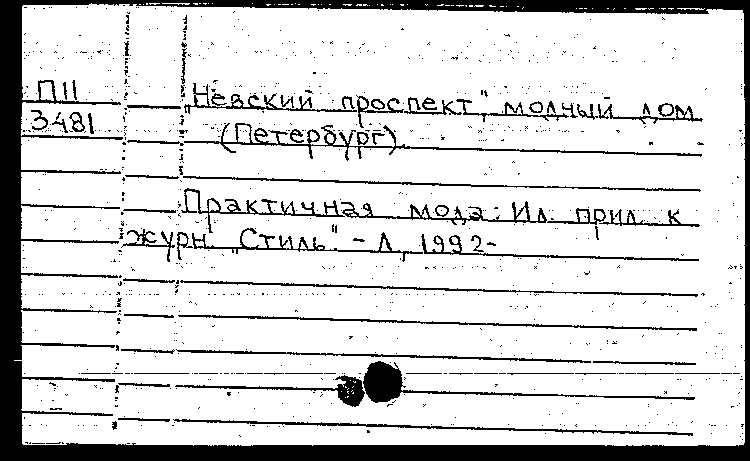 П11 „Невский проспект", модный дом
3481 (Петербург).
Практичная мода: Ил. прил. к
журн. „Стиль". - Л., 1992-